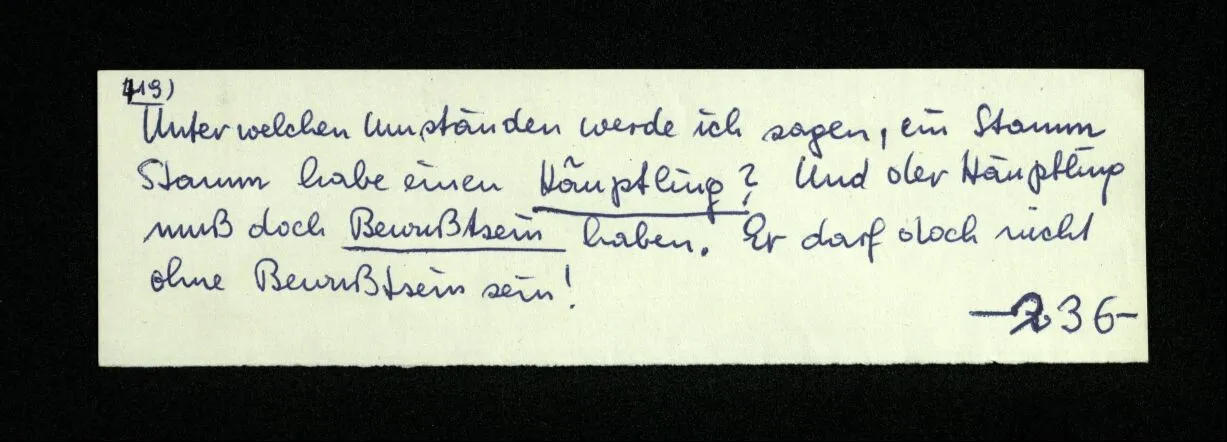 419)
Unter welchen Umständen werde ich sagen, ein Stamm
Stamm habe einen Häuptling? Und der Häuptling
muß doch Bewußtsein haben. Er darf doch nicht
ohne Bewußtsein sein!
-236-